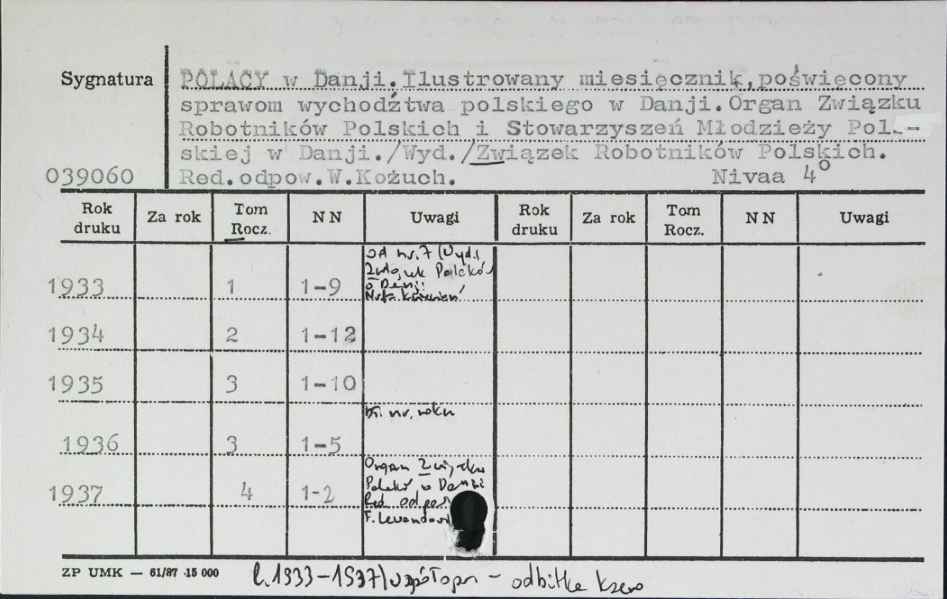 Sygnatura
POLACY w Danji.Ilustrowany miesięcznik,poświęcony
sprawom wychodźtwa polskiego w Danji.Organ Związku
Robotników Polskich i Stowarzyszeń Młodzieży Pol-
skiej w Danji./Wyd./Związek Robotników Polskich.
039060 Red.odpow.W.Kożuch. Nivaa 4°
Rok druku Za rok Tom Rocz. NN Uwagi Rok druku Za rok Tom Rocz. NN Uwagi
od nr. 7 (Wyd.)
Związek Polaków
w Danji
1933 1 1-9
1934 2 1-12
1935 3 1-10
nr. roku
1936 3 1-5
Organ Związku
Polaków w Danii
1937 4 1-2
Red. odpow
F.
ZP UMK — 61/87 15 000
R.1933-1937/współopr - odbitka ksero